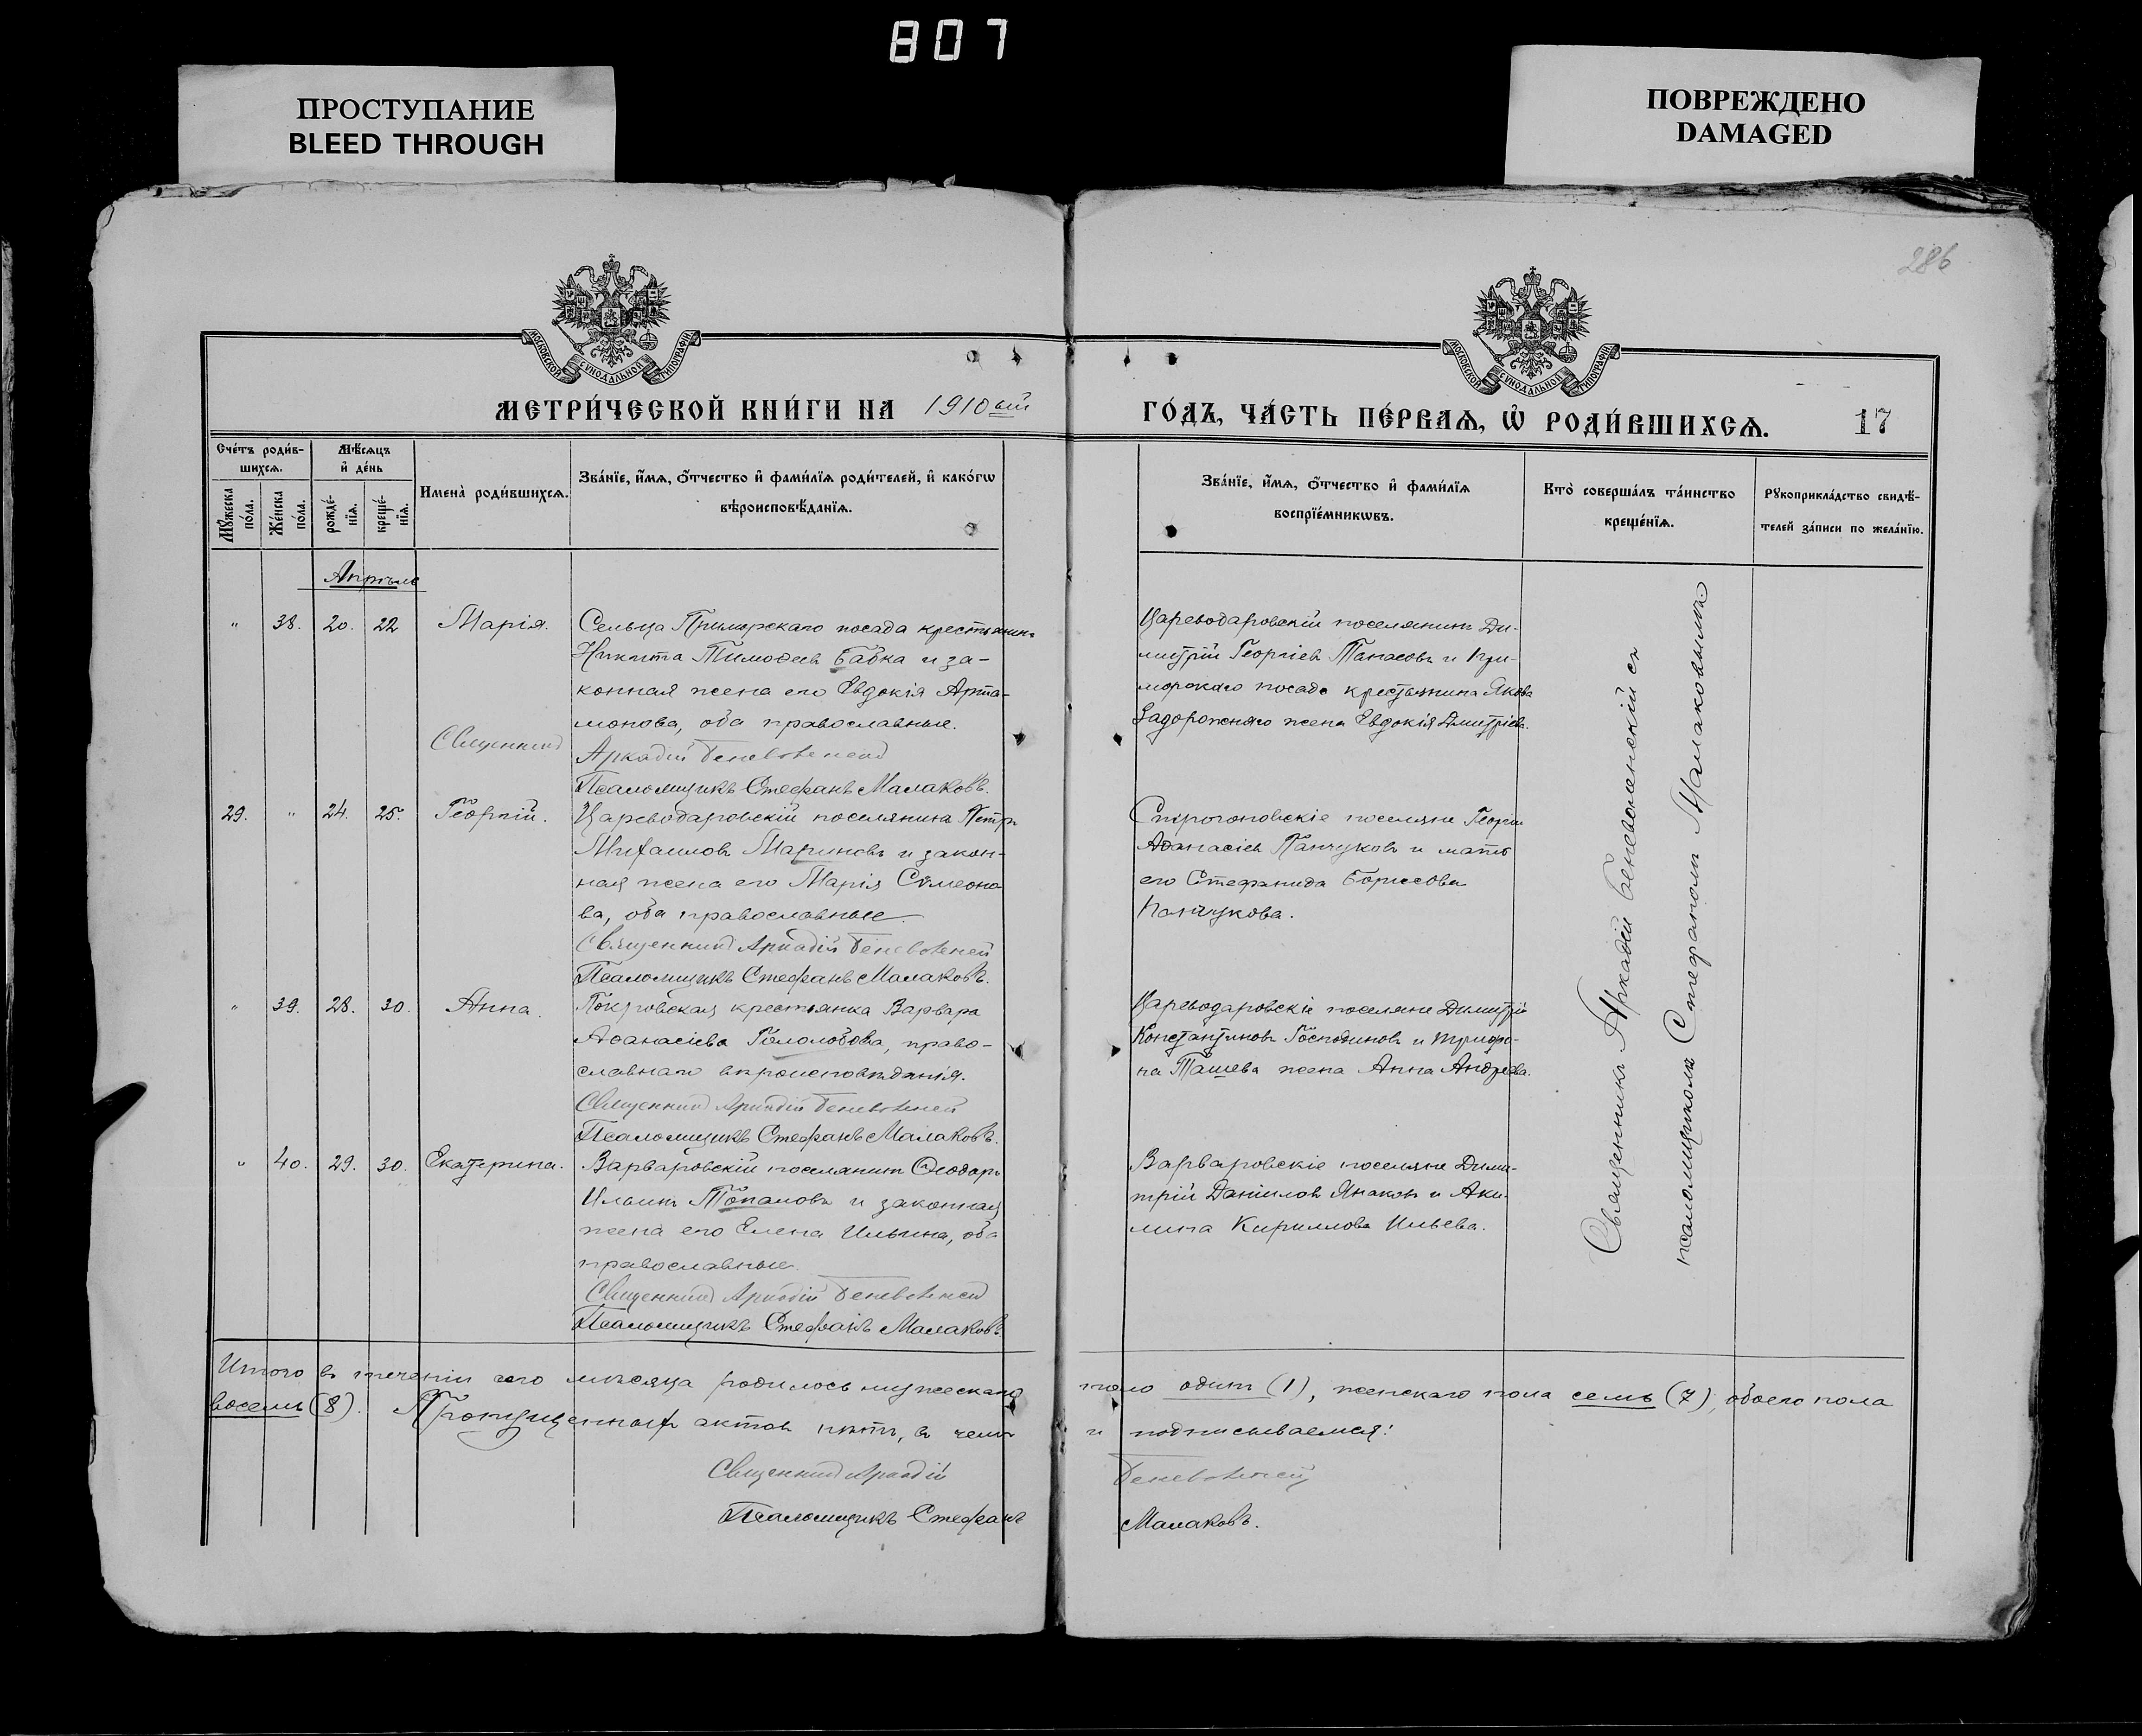 807
ПРОСТУПАНИЕ
BLEED THROUGH
ПОВРЕЖДЕНО
DAMAGED
286
МОСКОВСКОЙ СѴНОДАЛЬНОЙ ТИПОГРАФІИ
МОСКОВСКОЙ СѴНОДАЛЬНОЙ ТИПОГРАФІИ
МЕТРИ́ЧЕСКОЙ КНИ́ГИ НА 1910ый
ГО́ДЪ, ЧА́СТЬ ПЕ́РВАѦ, Ѡ҆ РОДИ́ВШИХСѦ.
17
Сче́тъ роди́в-
шихсѧ.
Мѣ́сѧцъ
и҆ де́нь
Мꙋ́жеска
по́ла.
Же́нска
по́ла.
рожде́-
нїѧ.
креще́-
нїѧ.
Имена̀ роди́вшихсѧ.
Зва́нїе, и҆́мѧ, ѻ҆́тчество и҆ фами́лїѧ роди́телей, и҆ како́гѡ
вѣроисповѣ́данїѧ.
Зва́нїе, и҆́мѧ, ѻ҆́тчество и҆ фами́лїѧ
воспрїе́мникѡвъ.
Кто̀ соверша́лъ та́инство
креще́нїѧ.
Рꙋкоприкла́дство свидѣ́-
телей за́писи по жела́нїю.
Апрѣль
" 38. 20. 22 Марія.
Сельца Приморскаго посада крестьянинъ
Никита Тимоѳеевъ Бабка и за-
конная жена его Евдокія Арта-
монова, оба православные.
Священникъ Аркадій Беневоленскій
Псаломщикъ Стефанъ Малаковъ.
Цареводаровскій поселянинъ Ди-
митрій Георгіевъ Танасовъ и При-
морскаго посада крестьянина Якова
Задорожняго жена Евдокія Дмитріева.
29. " 24. 25. Георгій.
Цареводаровскій поселянинъ Петръ
Михаиловъ Мариновъ и закон-
ная жена его Марія Сѵмеоно-
ва, оба православные.
Священникъ Аркадій Беневоленскій
Псаломщикъ Стефанъ Малаковъ.
Строгоновскіе поселяне Георгій
Аѳанасіевъ Панчуковъ и мать
его Стефанида Борисова
Панчукова.
" 39. 28. 30. Анна.
Покровская крестьянка Варвара
Аѳанасіева Гололобова, право-
славнаго вѣроисповѣданія.
Священникъ Аркадій Беневоленскій
Псаломщикъ Стефанъ Малаковъ.
Цареводаровскіе поселяне Димитрій
Константиновъ Господиновъ и Трифо-
на Ташева жена Анна Андреева.
" 40. 29. 30. Екатерина.
Варваровскій поселянинъ Ѳеодоръ
Ильинъ Топаловъ и законная
жена его Елена Ильина, оба
православные.
Священникъ Аркадій Беневоленскій
Псаломщикъ Стефанъ Малаковъ
Варваровскіе поселяне Дими-
трій Даніиловъ Янаковъ и Аки-
лина Кириллова Ильева.
Священникъ Аркадій Беневоленскій съ
псаломщикомъ Стефаномъ Малаковымъ.
Итого въ теченіи сего мѣсяца родилось мужескаго пола одинъ (1), женскаго пола семь (7), обоего пола
восемь (8). Пропущенныхъ актовъ нѣтъ, въ чемъ и подписываемся:
Священникъ Аркадій Беневоленскій
Псаломщикъ Стефанъ Малаковъ.